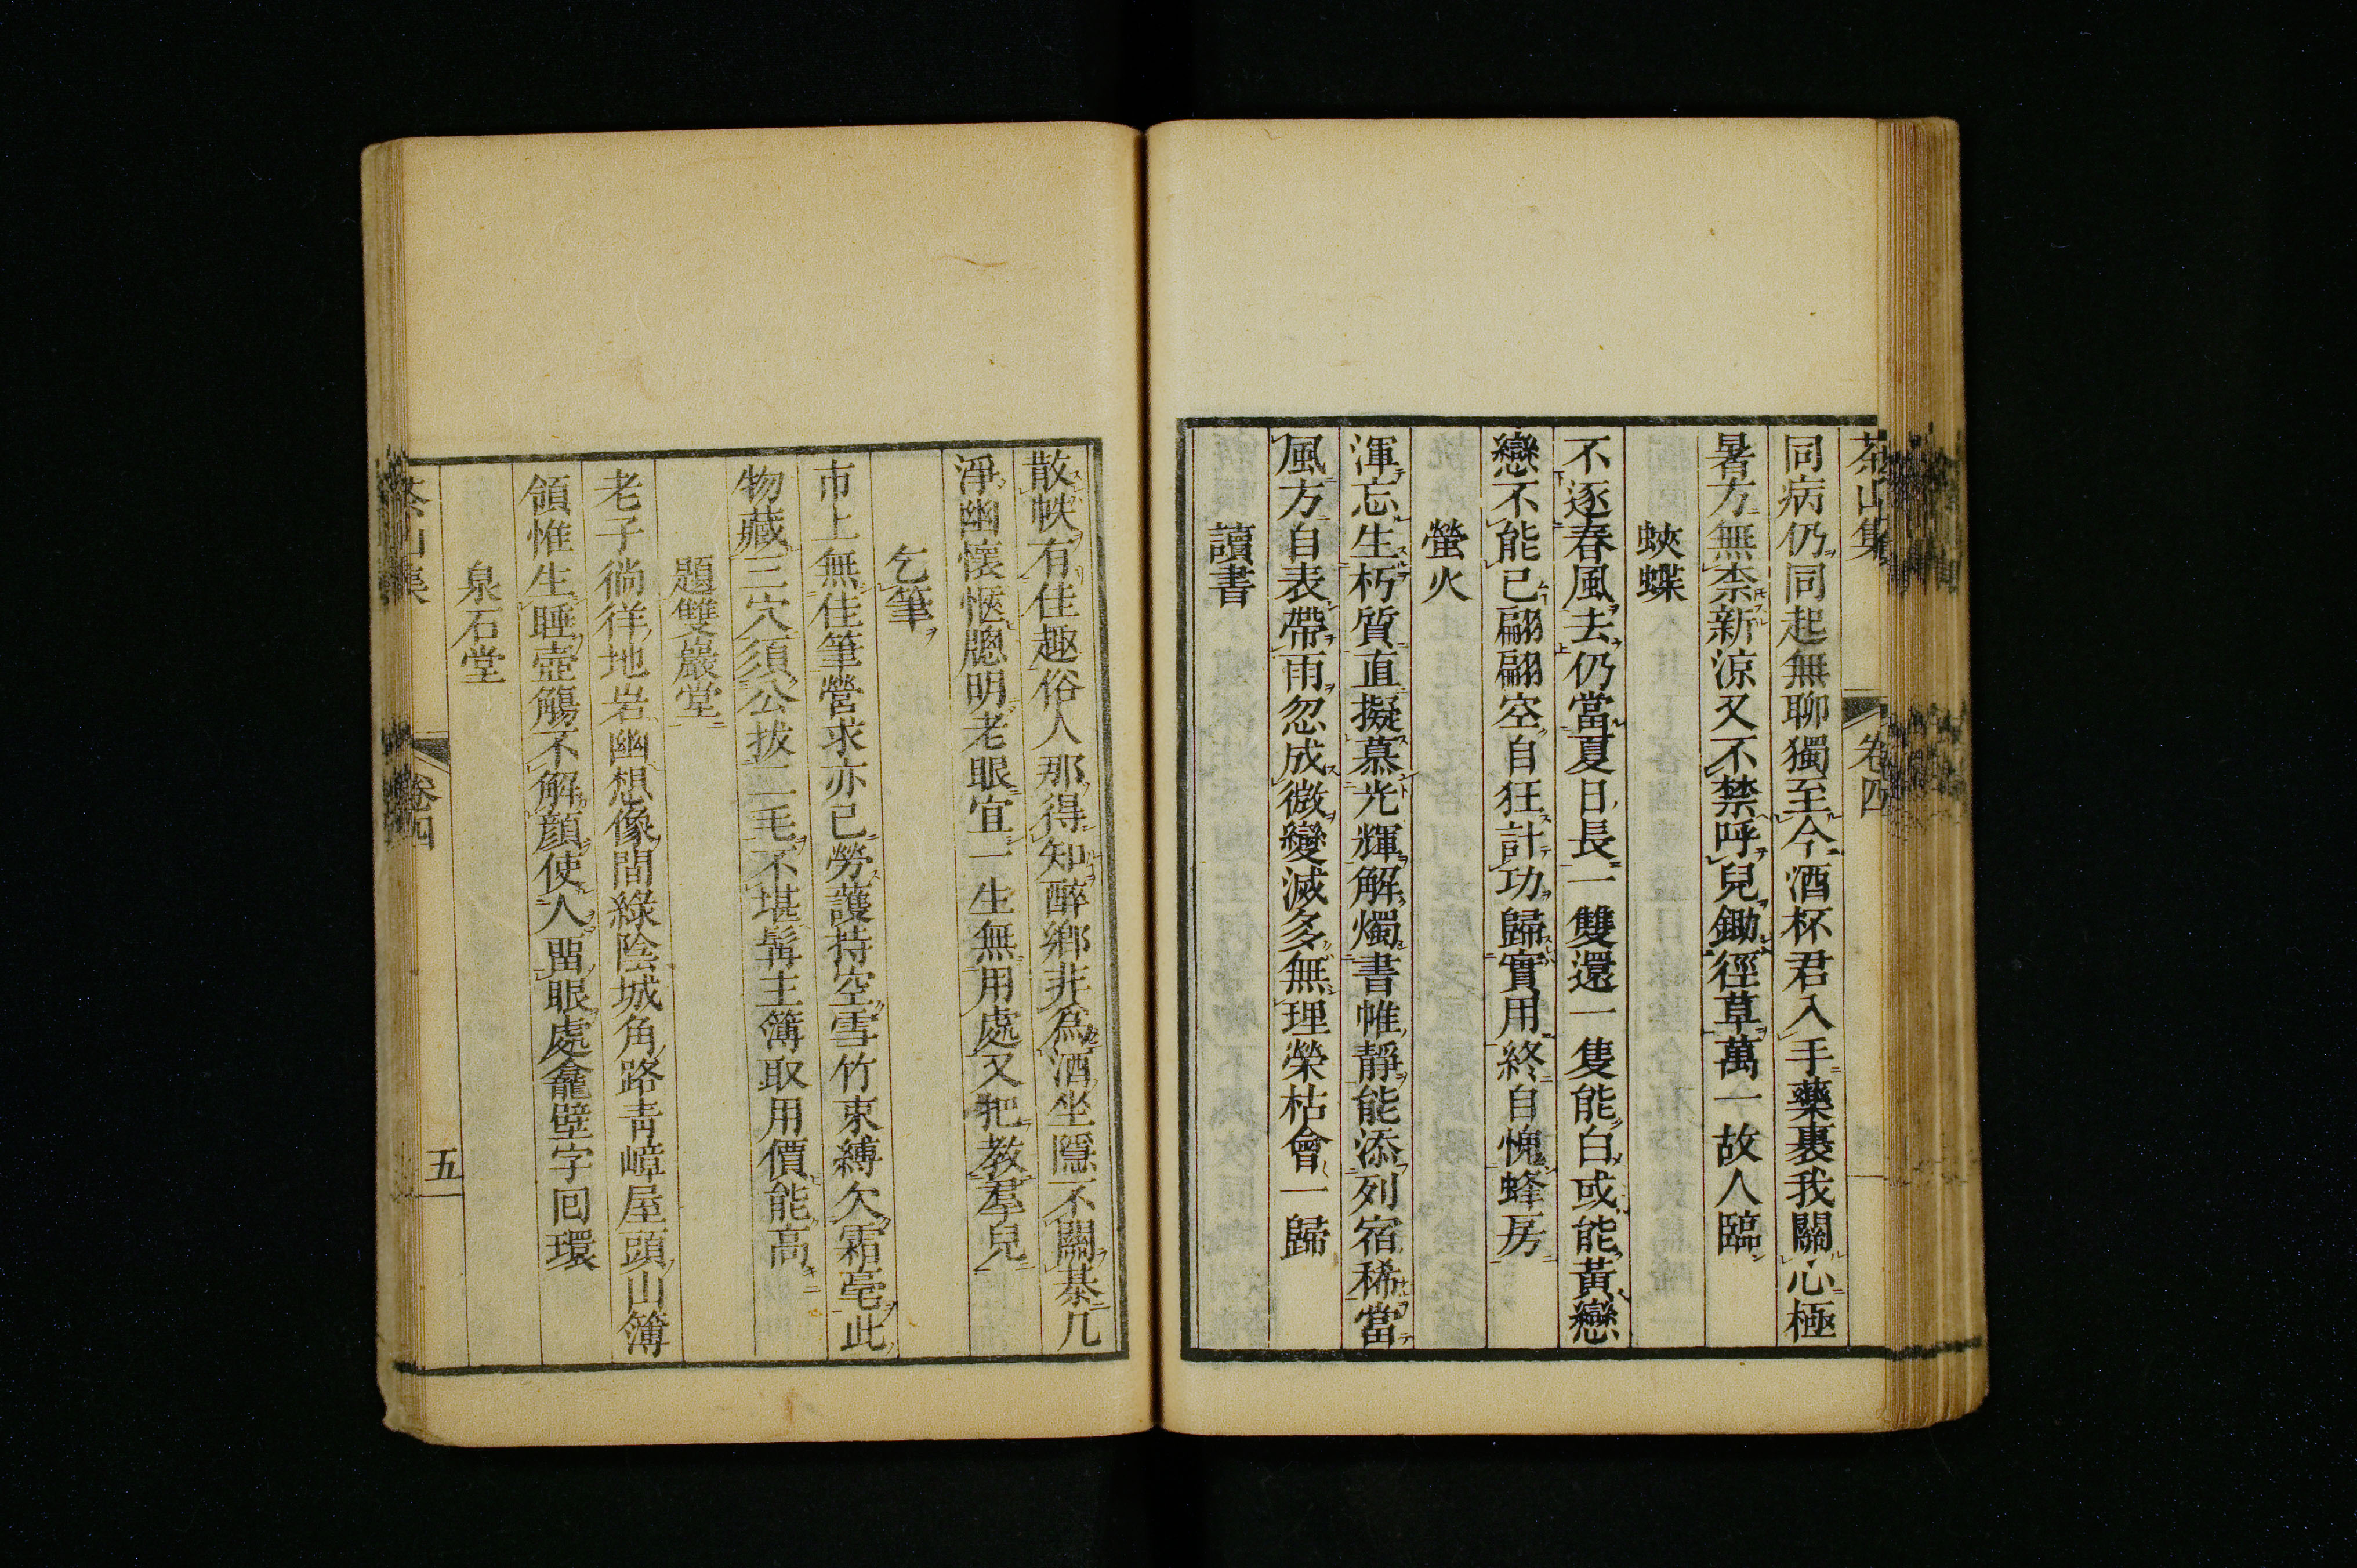 茶山集 卷四
同病仍同起無聊獨至今酒杯君入手藥裹我關心極
暑方無柰新涼又不禁呼兒鋤徑草萬一故人臨
蛺蝶
不逐春風去仍當夏日長一雙還一隻能白或能黃戀
戀不能已翩翩空自狂計功歸實用終自愧蜂房
螢火
渾忘生朽質直擬慕光輝解燭書帷靜能添列宿稀當
風方自表帶雨忽成微變滅多無理榮枯會一歸
讀書
散帙有佳趣俗人那得知醉鄉非爲酒坐隱不關棊几
淨幽懷愜牕明老眼宜一生無用處又把教羣兒
乞筆
市上無佳筆營求亦已勞護持空雪竹束縛欠霜毫此
物藏三穴須公拔一毛不堪髯主簿取用價能高
題雙巖堂
老子徜徉地岩幽想像間綠陰城角路青嶂屋頭山簿
領惟生睡壺觴不解顏使人畱眼處龕壁字回環
泉石堂
茶山集 卷四 五